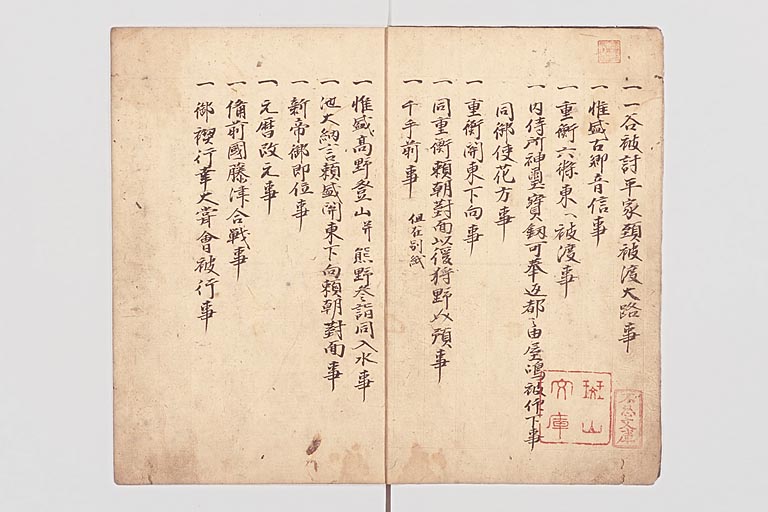 一 一谷被討平家頚被渡大路事
一 惟盛古郷音信事
一 重衡六條東へ被渡事
一 内侍所神璽寳釼可奉返都之由屋嶋被仰下事
同御使花方事
一 重衡関東下向事
一 同重衡頼朝對面以後狩野助預事
一 千手前事 但在別紙
一 惟盛高野登山并熊野参詣同入水事
一 池大納言頼盛関東下向頼朝對面事
一 新帝御即位事
一 元暦改元事
一 備前國藤津合戦事
一 御禊行幸大嘗會被行事
斑山文庫